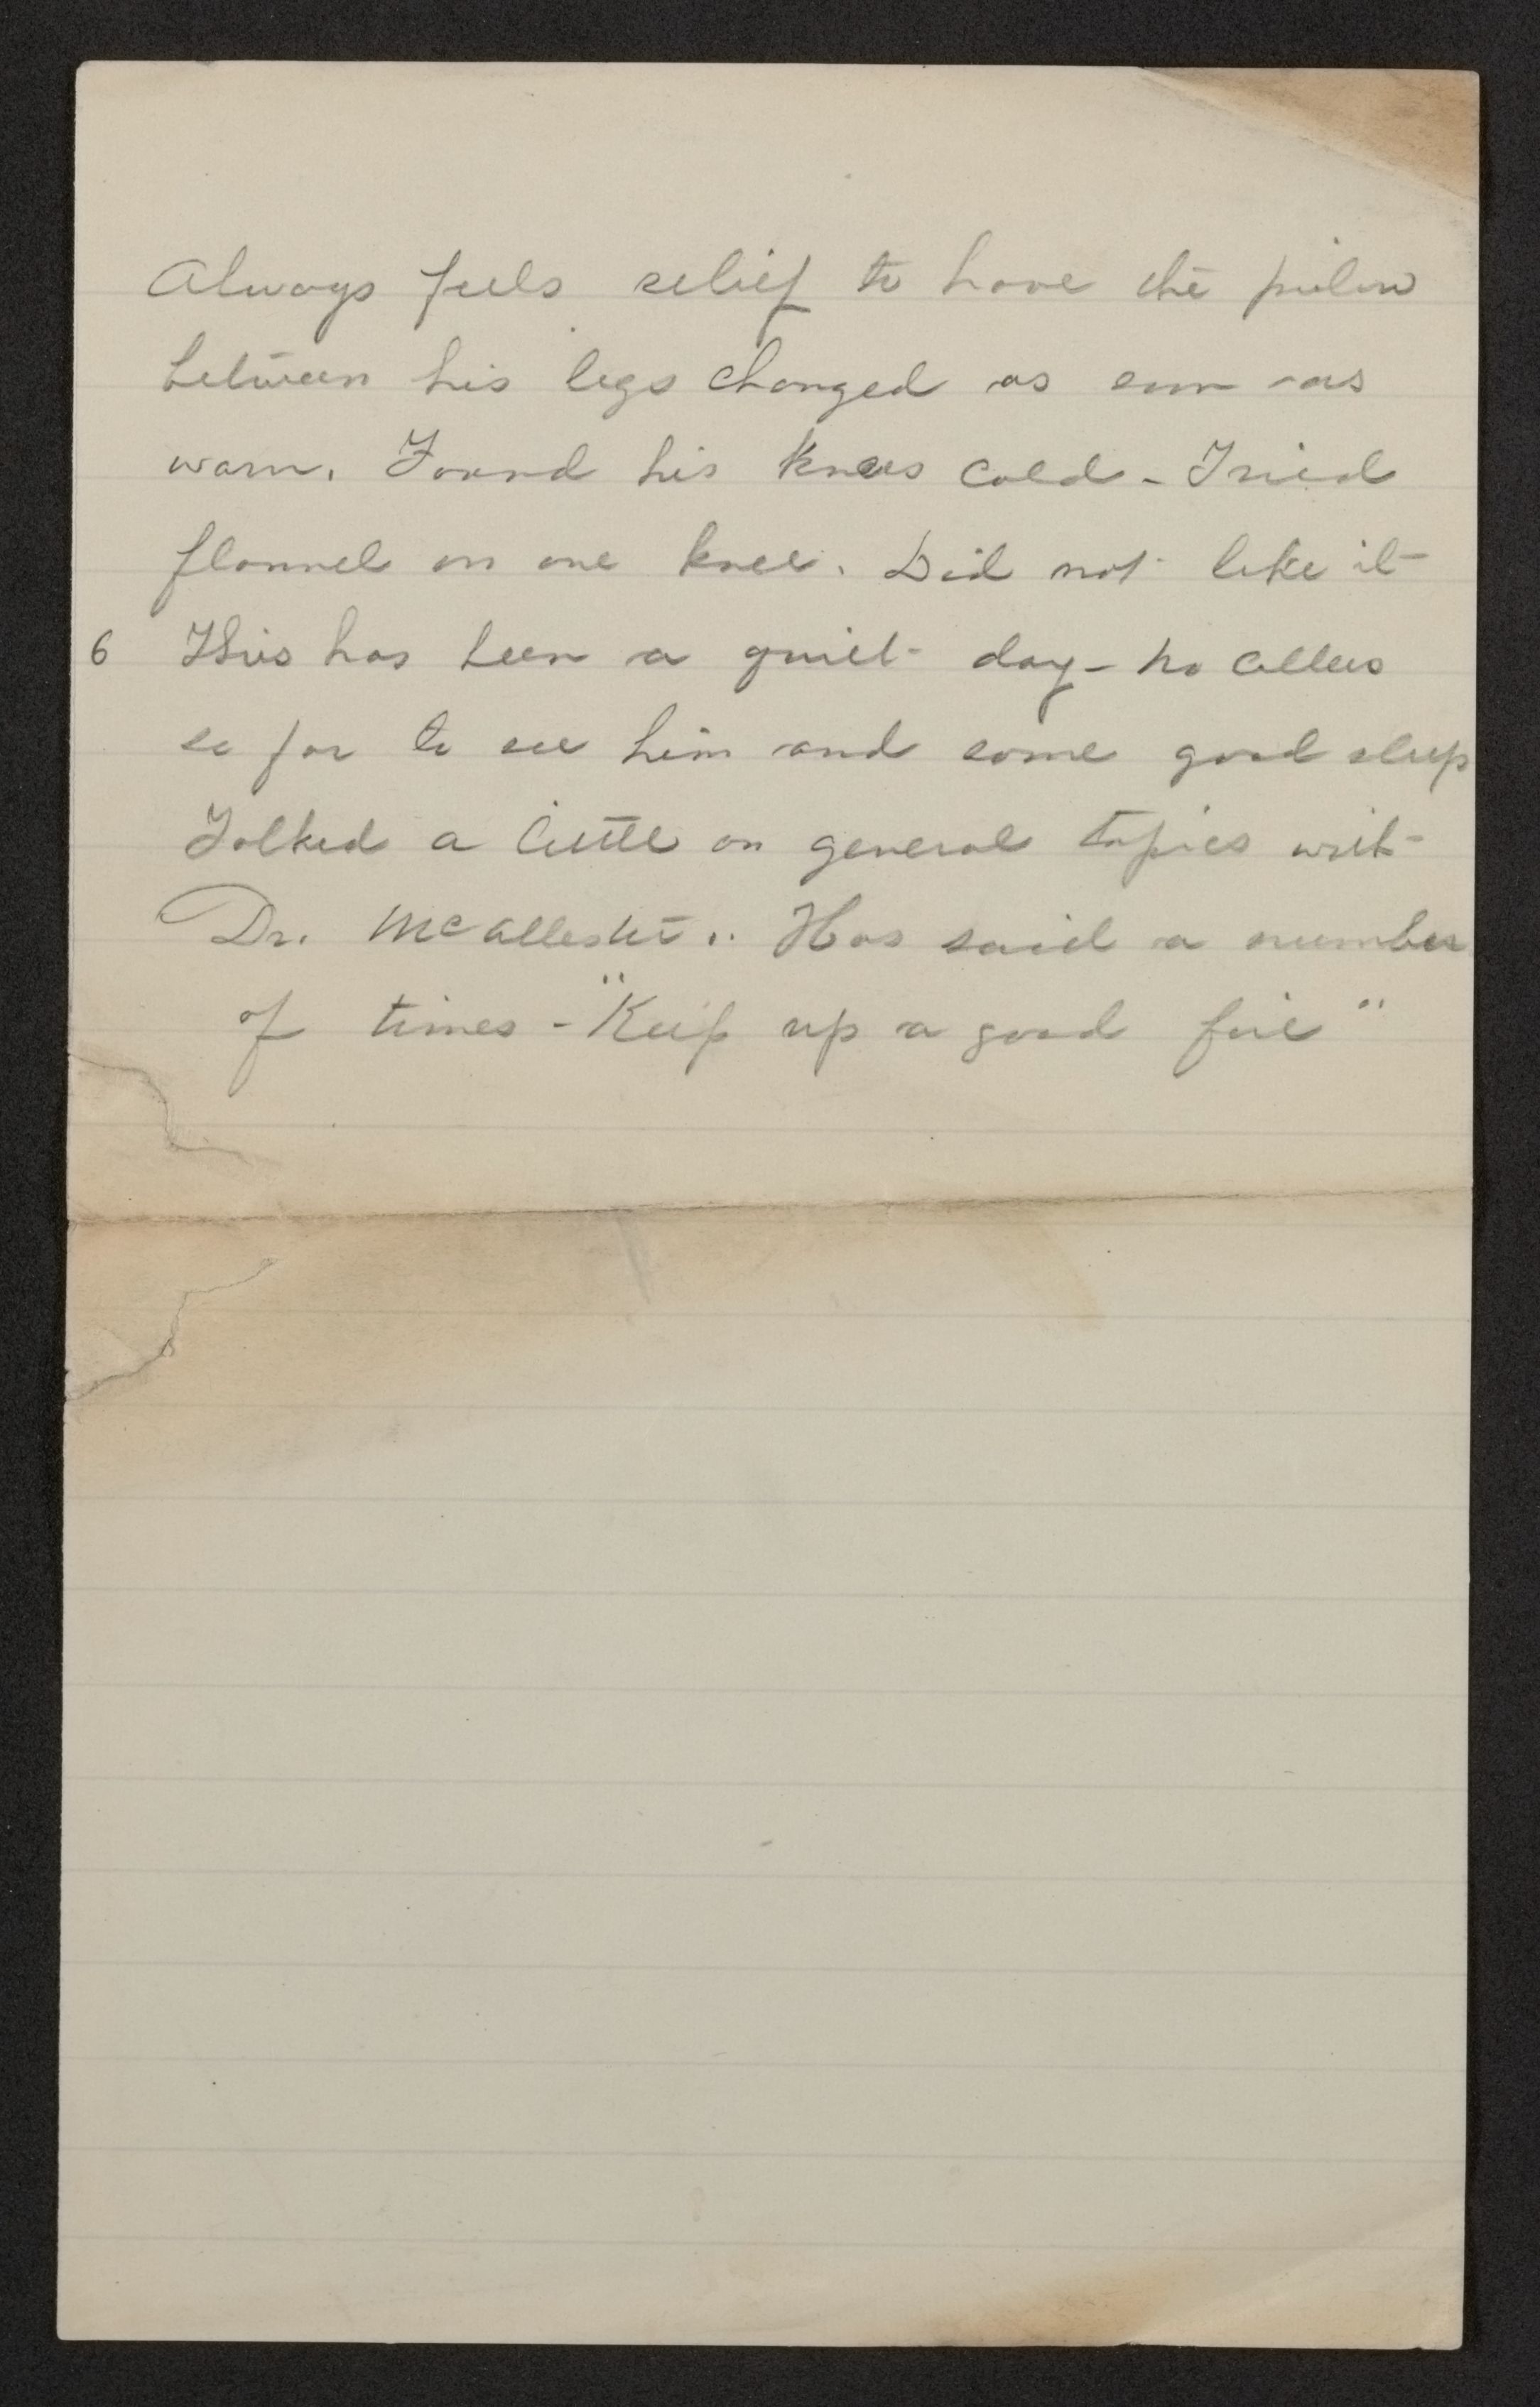 Always feels relief to have the pillow
between his legs changed as soon as
warm. Found his knees cold - Tried
flannel on one knee. Did not like it
6 This has been a quiet day - no callers
so far to see him and some good sleep
Talked a little on general topics with
Dr. McAllester.. Has said a number
of times - "Keep up a good fire"